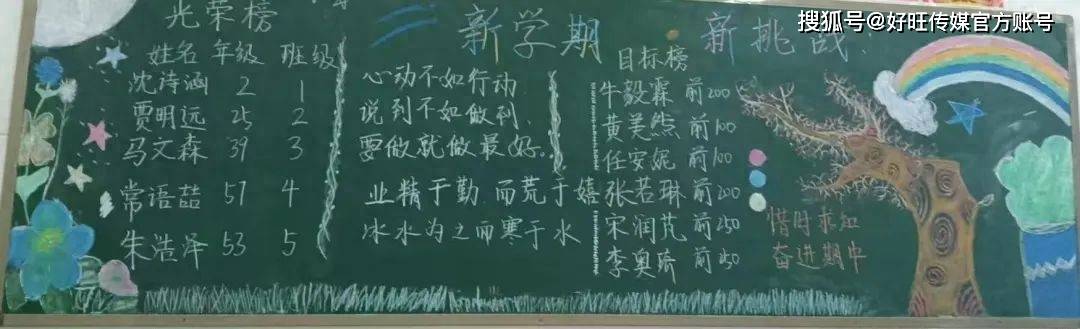 搜狐号@好旺传媒官方账号
光荣榜
姓名 年级 班级
沈诗涵 2 1
贾明远 25 2
马文森 39 3
常语喆 57 4
朱浩泽 53 5
新学期 新挑战
心动不如行动
说到不如做到
要做就做最好。
业精于勤 而荒于嬉
冰水为之而寒于水
目标榜
牛毅霖 前200
黄美然 前100
任安妮 前100
张若琳 前200
宋润芃 前250
李奥 前
惜时求知
奋进期中